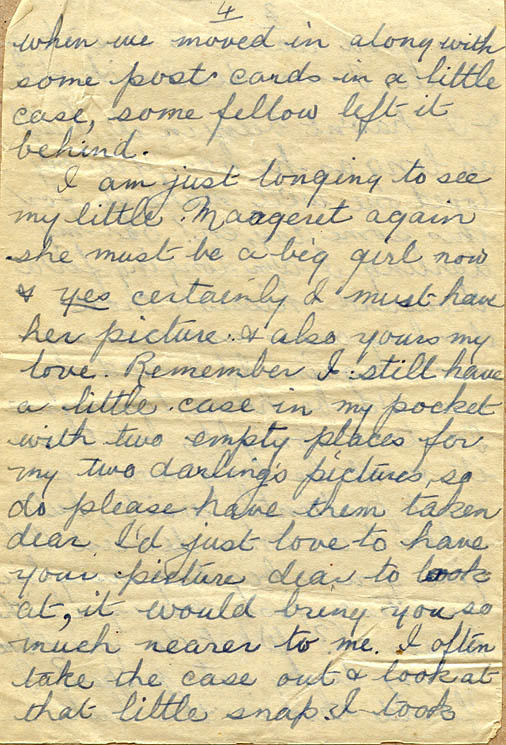 4
when we moved in along with
some post cards in a little
case, some fellow left it
behind.
I am just longing to see
my little Maageret again
she must be a big girl now
& yes certainly I must have
her picture & also yours my
love. Remember I still have
a little case in my pocket
with two empty places for
my two darling's pictures, so
do please have them taken
dear I'd just love to have
your picture dear to look
at, it would bring you so
much nearer to me. I often
take the case out & look at
that little snap I took